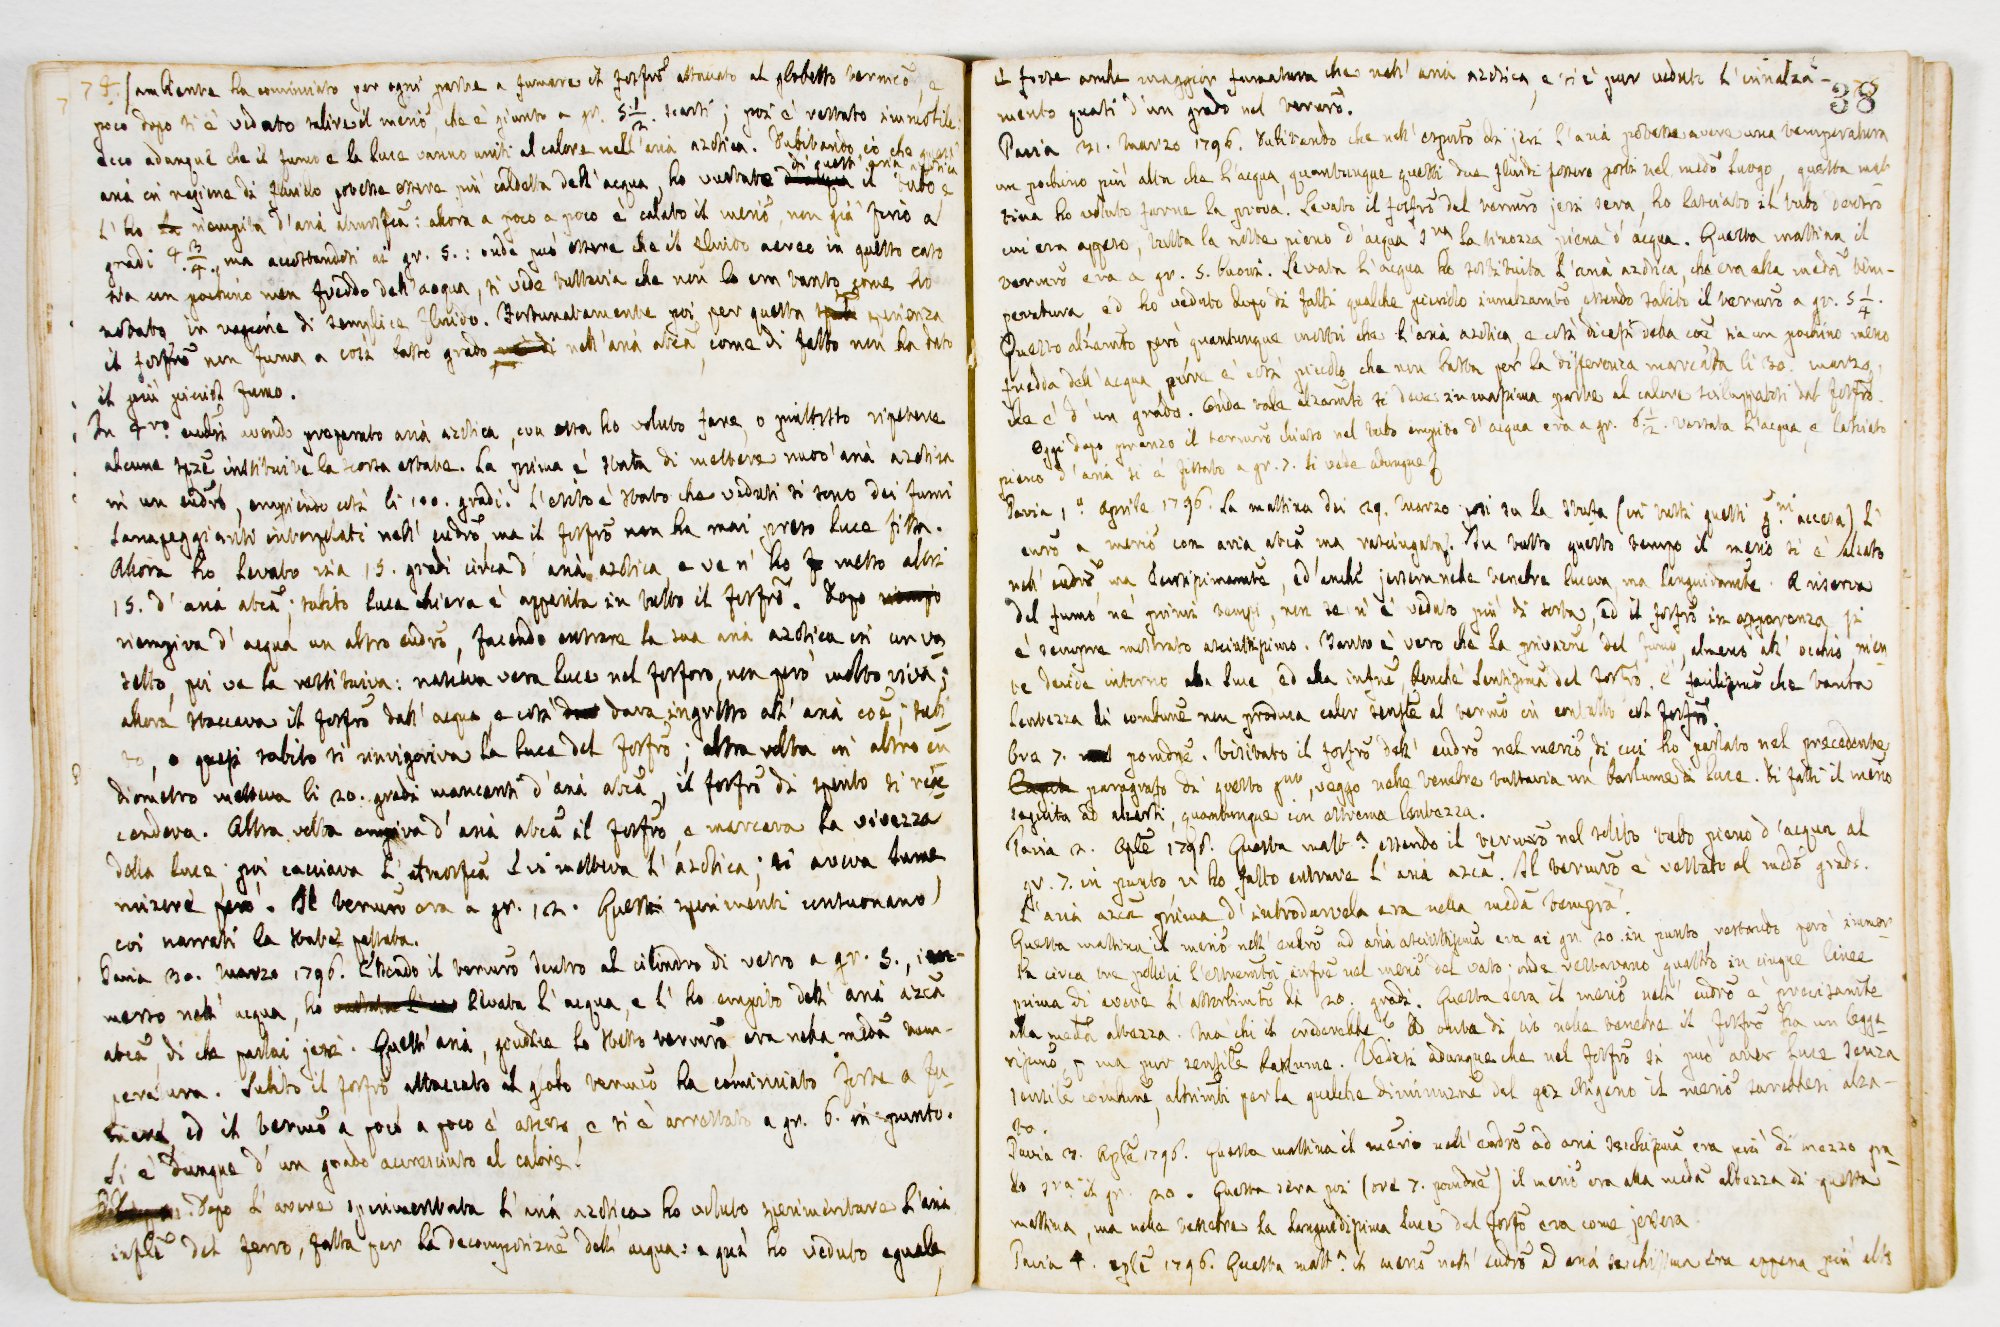 74. l'ambiente ha cominciato per ogni parte a fumare il fosfrõ attaccato al globetto termicõ, e
poco dopo si è veduto salire il meriõ, che è giunto a gr. 5 1/2. scarsi; poi è restato immobile.
Ecco adunque che il fumo e la luce vanno uniti al calore nell'aria azotica. Dubitando ciò che quest'
aria in ragione di fluido potesse essere più caldetta dell'acqua, ho vuotato di quest'aria azotica il tubo, e
l'ho riempito d'aria atmosfcã: allora a poco a poco è calato il meriõ, non già fino a
gradi 4 3/4., ma accostandosi ai gr. 5.: onde può essere che il fluido aereo in questo caso
sia un pochino men freddo dell'acqua, si vede tuttavia che non lo era tanto come ho
notato in ragione di semplice fluido. Fortunatamente poi per questa sperienza
il fosfrõ non fuma a così basso grado nell'aria atcã, come di fatto non ha dato
il più piccol fumo.
In 4ro. eudrĩ avendo preparato aria azotica, con essa ho voluto fare, o piuttosto ripetere
alcune spzẽ instituite la scorsa estate. La prima è stata di mettere nuov'aria azotica
in un eudrõ, empiendo così li 100. gradi. L'esito è stato che veduti si sono dei fumi
lampeggianti interpolati nell'eudrõ, ma il fosfrõ non ha mai preso luce fissa.
Allora ho levato via 15. gradi circa d'aria azotica, e ve n'ho messo altri
15. d'aria atcã; subito luce chiara è apparita in tutto il fosfrõ. Dopo
riempiva d'acqua un altro eudrõ, facendo entrare la sua aria azotica in un va-
setto, poi ve la restituiva: nasceva vera luce nel fosforo, non però molto viva;
allora staccava il fosfrõ dall'acqua, e così dava ingresso all'aria coẽ; subi
to, o quasi subito si rinvigoriva la luce del fosfrõ; altra volta in altro eu
diometro metteva li 20. gradi mancanti d'aria atcã, il fosfrõ di spento si riac-
cendeva. Altra volta empiva d'aria atcã il fosfrõ, e marcava la vivezza
della luce; poi cacciava l'atmosfcã e vi metteva l'azotica; si aveva lume,
minore però. Il termrõ era a gr. 12. Questi sperimenti continuarono
coi narrati la state passata.
Pavia 30. Marzo 1796. Essendo il termrõ dentro al cilindro di vetro a gr. 5., im-
merso nell'acqua, ho levata l'acqua, e l'ho empito dell'aria azcã
atcã, di che parlai jeri. Quest'aria, giudice lo stesso termrõ, era nella medã tem-
peratura. Subito il fosfrõ attaccato al globo termicõ ha cominciato forte a fu-
mare, ed il termrõ a poco a poco è asceso, e si è arrestato a gr. 6. in punto.
Si è dunque d'un grado accresciuto il calore!
Dopo l'avere sperimentata l'aria azotica ho voluto sperimentare l'aria
inflẽ del ferro, fatta per la decomposiznẽ dell'acqua: e quì ho veduto eguale,
38
e forse anche maggior fumatura che nell'aria azotica, e si è pur veduto l'innalza-
mento quasi d'un grado nel termrõ.
Pavia 31. Marzo 1796. Dubitando che nell'esprtõ di jeri l'aria potesse avere una temperatura
un pochino più alta che l'acqua, quantunque questi due fluidi fossero posti nel medõ luogo, questa mat-
tina ho voluto farne la prova. Levato il fosfrõ dal termrõ jeri sera, ho lasciato il tubo dentro
cui era appeso, tutta la notte pieno d'acqua sra la tinozza piena d'acqua. Questa mattina il
termrõ era a gr. 5. buoni. Levata l'acqua ho sostituita l'aria azotica, che era alla medã tem-
peratura ed ho veduto dopo di fatti qualche piccolo innalzamtõ, essendo salito il termrõ a gr. 5 1/4.
Questo alzamtõ però, quantunque mostri che l'aria azotica, e così dicasi della coẽ sia un pochino meno
fredda dell'acqua, pure è così piccolo, che non basta per la differenza marcata li 30. marzo,
che è d'un grado. Onde tale alzamtõ si deve in massima parte al calore sviluppatosi dal fosfrõ.
Oggi dopo pranzo il termrõ chiuso nel tubo empito d'acqua era a gr. 6 1/2. Vuotata l'acqua, e lasciato
pieno d'aria si è fissato a gr. 7. Si vede adunque
Pavia 1o. Aprile 1796. La mattina dei 29. Marzo posi su la stufa (in tutti questi gni accesa) l'
eudrõ a meriõ con aria atcã ma rasciugata. In tutto questo tempo il meriõ si è alzato
nell'eudrõ, ma lentissimamtẽ, ed anche jersera nelle tenebre luceva, ma languidamtẽ. A riserva
del fumo ne' primi tempi, non se n'è veduto più di sorta, ed il fosfrõ in apparenza si
è sempre mostrato asciuttissimo. Tanto è vero che la privaznẽ del fumo, almeno all'occhio, nien-
te decide intorno alla luce, ed alla infnẽ, benchè lentissima del fosfrõ. È facilissimo che tanta
lentezza di combustnẽ non produca calor sensilẽ al termrõ in contatto col fosfrõ.
Ore 7. pomdnẽ. Visitato il fosfrõ dell'eudrõ nel meriõ, di cui ho parlato nel precedente
paragrafo di questo gno, veggo nelle tenebre tuttavia un barlume di luce. Di fatti il meriõ
seguita ad alzarsi, quantunque con estrema lentezza.
Pavia 2. Aplẽ 1796. Questa matta. essendo il termrõ nel solito tubo pieno d'acqua al
gr. 7. in punto vi ho fatto entrare l'aria azcã. Il termrõ è restato al medõ grado.
L'aria azcã prima d'introdurvela era nella medã tempra.
Questa mattina il meriõ nell'eudrõ ad aria asciuttissima era ai gr. 20. in punto, restando però immer-
sa circa tre pollici l'estremità infre nel meriõ del vaso: onde restavano quattro in cinque linee
prima di avere l'assorbimtõ di 20. gradi. Questa sera il meriõ nell'eudrõ è precisamtẽ
alla medã altezza. Ma chi il crederebbe? Ad onta di ciò nelle tenebre il fosfrõ ha un legge-
rissimo, ma pur sensilẽ barlume. Vedesi adunque che nel fosfrõ si può aver luce senza
sensilẽ combustnẽ, altrimtĩ per la qualche diminuznẽ del gaz ossigeno il meriõ sarebbesi alza-
to.
Pavia 3. Aplẽ 1796. Questa mattina il meriõ nell'eudrõ ad aria secchissma era più di mezzo gra-
do sra il gr. 20. Questa sera poi (ore 7. pomdnẽ) il meriõ era alla medã altezza di questa
mattina, ma nelle tenebre la languidissima luce del fosfrõ era come jersera.
Pavia 4. aplẽ 1796. Questa matta. il meriõ nell'eudrõ ad aria secchissima era appena più alto